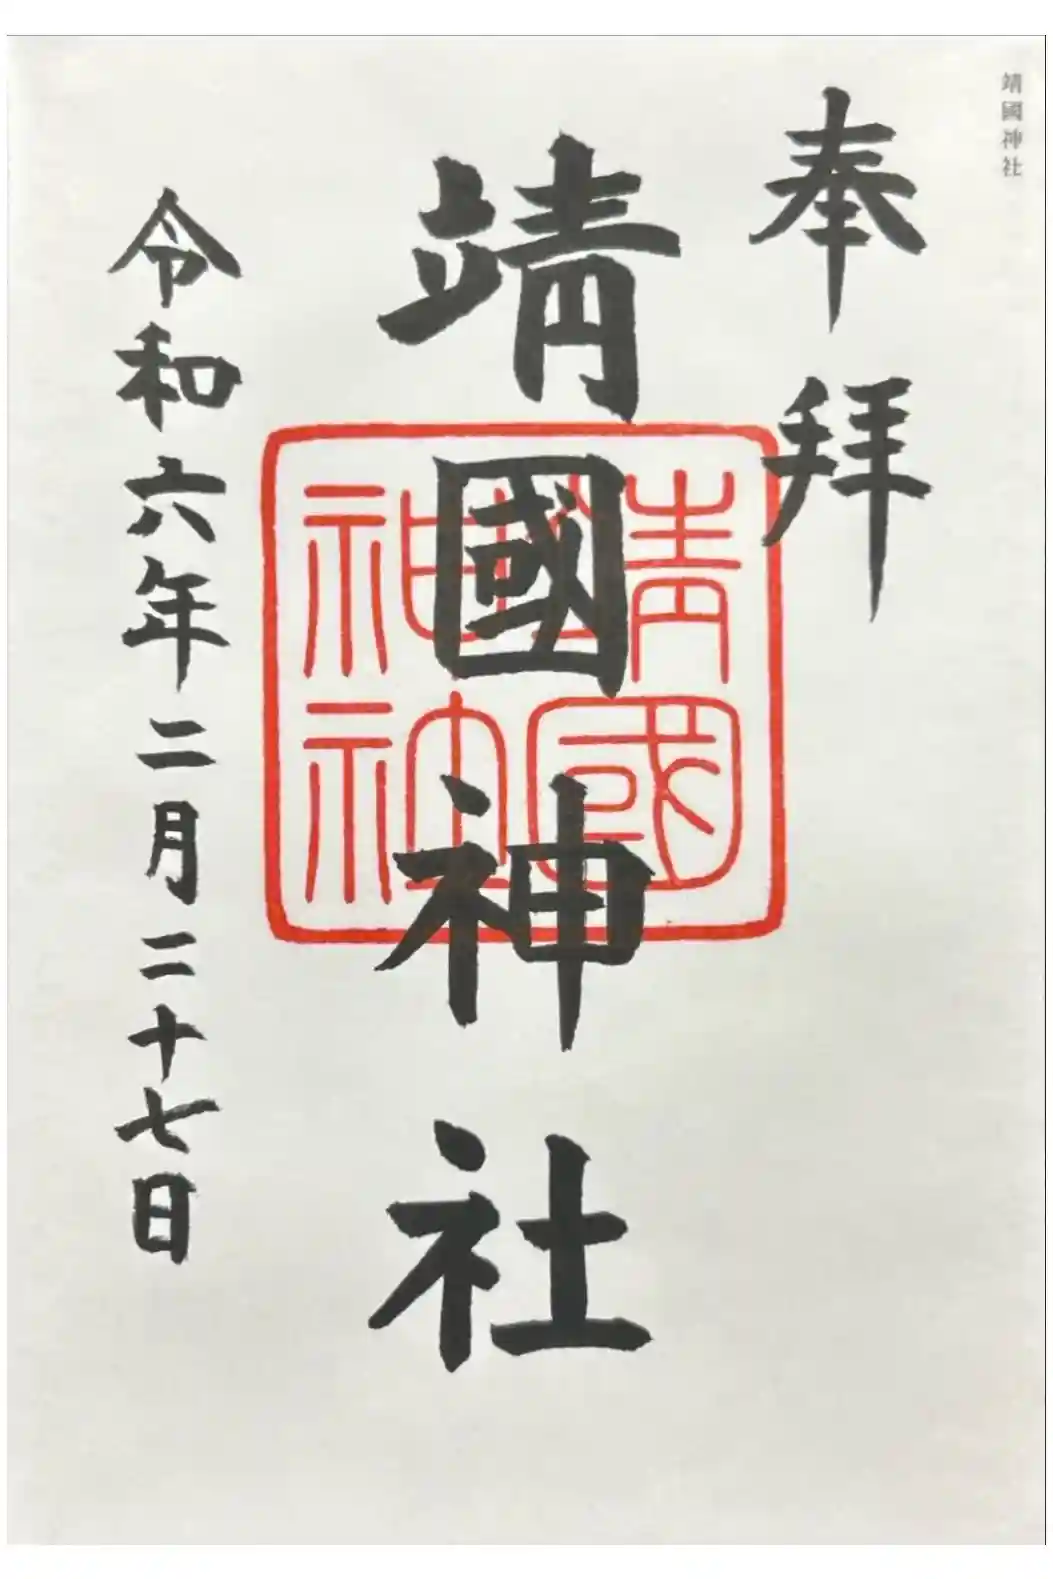 靖國神社
奉拜
靖國神社
靖國
神社
令和六年二月二十七日